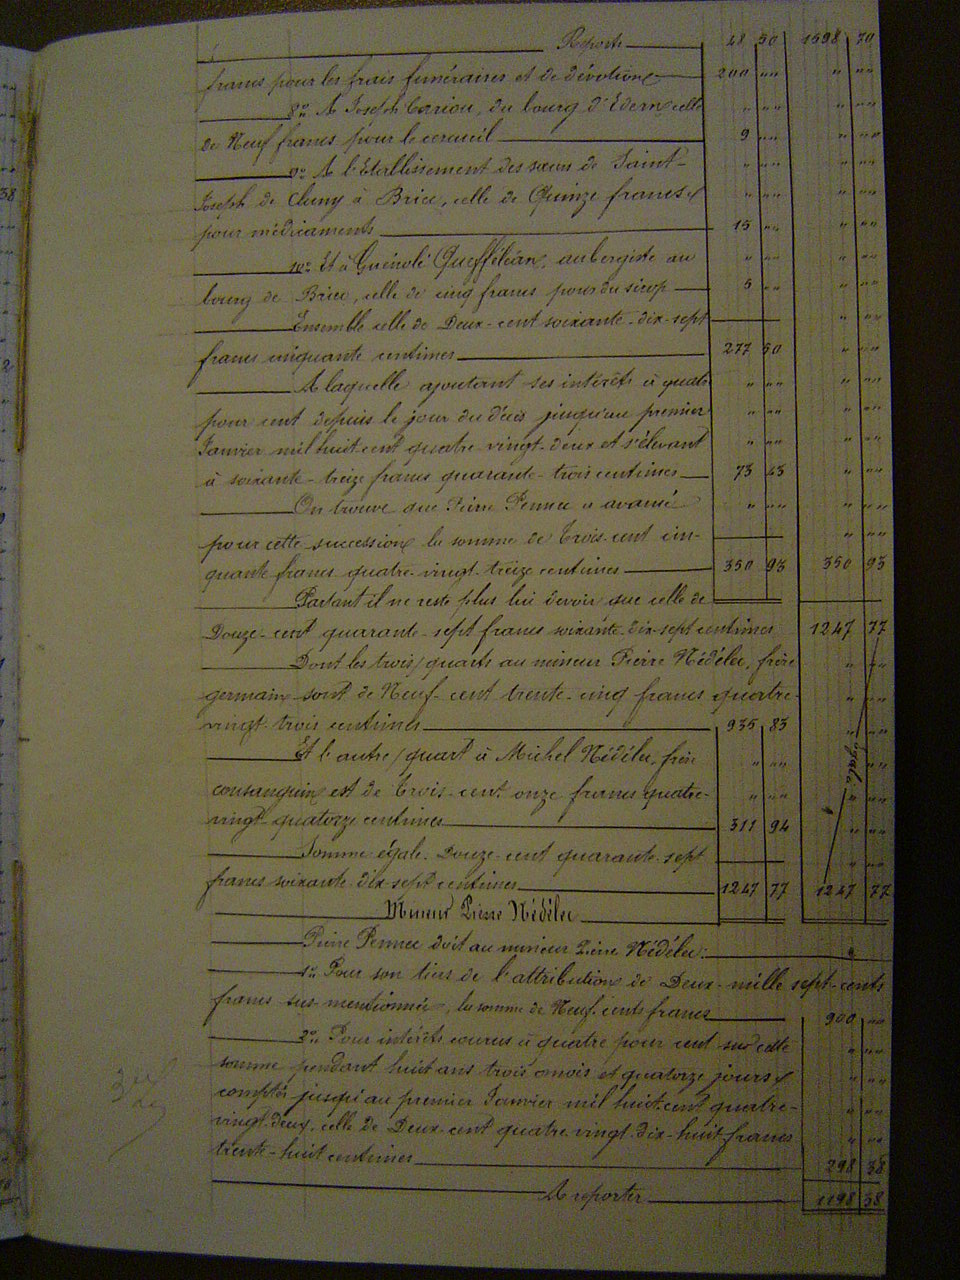 Reporte 48 50 1598 70
francs pour les frais funéraires et de dévotion 200 "" " ""
8° A Joseph Cariou, du bourg d'Edern celle " "" " ""
de Neuf francs pour le cercueil 9 "" " ""
9° A l'Etablissement des sœurs de Saint- " "" " ""
Joseph de Cluny à Briec, celle de Quinze francs " "" " ""
pour médicaments 15 "" " ""
10° Et à Guénolé Quefféléan, aubergiste au " "" " ""
bourg de Briec, celle de cinq francs pour du sirop 5 "" " ""
Ensemble celle de Deux-cent soixante-dix-sept " ""
francs cinquante centimes 277 50 " ""
A laquelle ajoutant ses intérêts à quatre " "" " ""
pour cent depuis le jour du décès jusqu'au premier " "" " ""
Janvier mil huit-cent quatre-vingt-deux et s'élevant " "" " ""
à soixante-treize francs quarante-trois centimes 73 43 " ""
On trouve que Pierre Pennec a avancé " "" " ""
pour cette succession la somme de Trois-cent cin- " ""
quante francs quatre-vingt-treize centimes 350 93 350 93
Partant il ne reste plus lui devoir que celle de
Douze-cent quarante-sept francs soixante-dix-sept centimes 1247 77
Dont les trois/quarts au mineur Pierre Nédélec, frère " ""
germain sont de Neuf-cent trente-cinq francs quatre- " ""
vingt-trois centimes 935 83 " ""
Et l'autre/quart à Michel Nédélec, frère " "" égale " ""
consanguin est de Trois-cent onze francs quatre- " "" " ""
vingt-quatorze centimes 311 94 " ""
Somme égale. Douze-cent quarante-sept " ""
francs soixante-dix-sept centimes 1247 77 1247 77
Mineur Pierre Nédélec
Pierre Pennec doit au mineur Pierre Nédélec:
1° Pour son tiers de l'attribution de Deux-mille sept-cents
francs sus-mentionnée, la somme de Neuf-cents francs 900 ""
2° Pour intérêts courus à quatre pour cent sur cette " ""
somme pendant huit ans trois mois et quatorze jours " ""
comptés jusqu'au premier Janvier mil huit-cent quatre- " ""
vingt-deux, celle de Deux-cent quatre-vingt-dix-huit francs " ""
trente-huit centimes 298 38
A reporter 1198 38